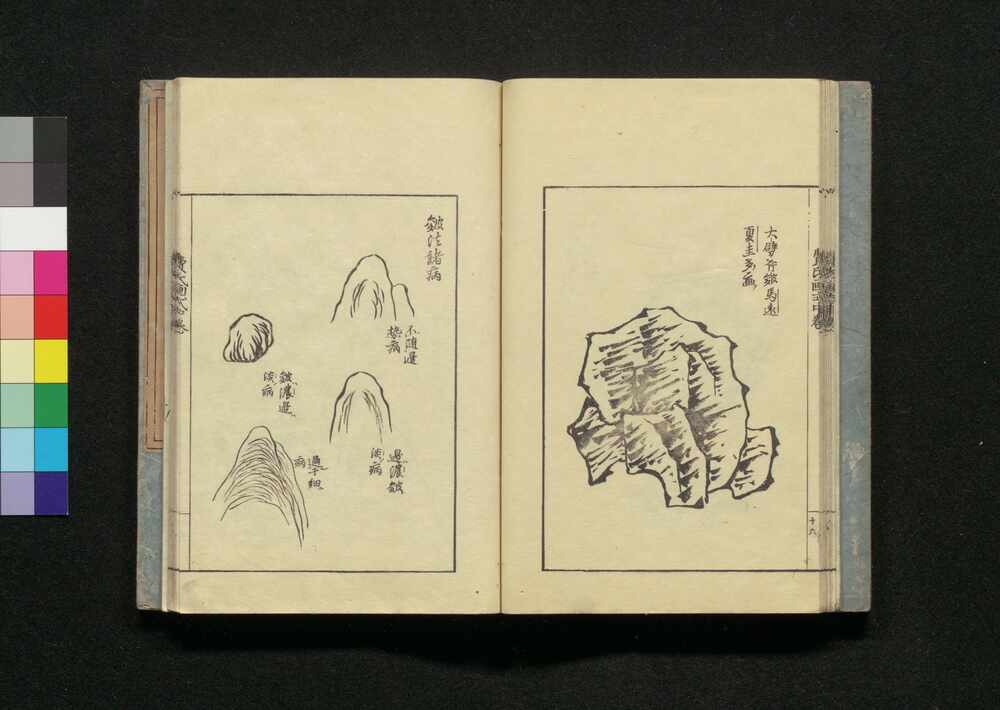 大劈斧皴馬遠
夏圭多画
十六
皴法諸病
不随邊
勢病
邊濃皴
淡病
皴濃邊
淡病
過于細
病